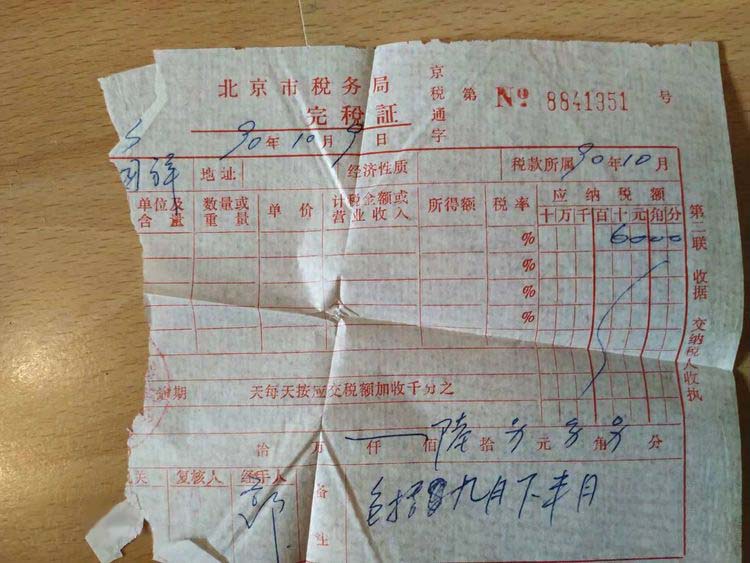 北京市税务局
完税証
京税通字 第 № 8841351 号
90年10月9日
祥 地址 经济性质 税款所属90年10月
单位及含量 数量或重量 单价 计税金额或营业收入 所得额 税率 应纳税额
十万千百十元角分
% 6000
%
%
%
逾期 天每天按应交税额加收千分之
拾 万 仟 佰 陆 拾 另 元 另 角 另 分
关 复核人 经手人 备注
包括九月下半月
第二联 收据 交纳税人收执